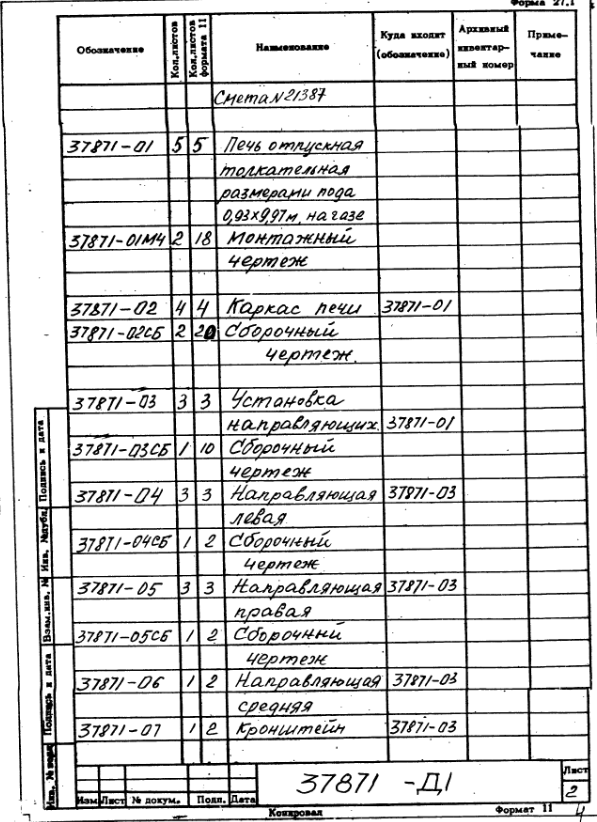 Форма 27.1
Обозначение Кол.листов Кол.листов формата 11 Наименование Куда входит (обозначение) Архивный инвентарный номер Примечание
Смета N 21387
37871-01 5 5 Печь отпускная
толкательная
размерами пода
0,93×9,97м, на газе
37871-01МЧ 2 18 Монтажный
чертеж
37871-02 4 4 Каркас печи 37871-01
37871-02СБ 2 20 Сборочный
чертеж.
37871-03 3 3 Установка
направляющих. 37871-01
37871-03СБ 1 10 Сборочный
чертеж
37871-04 3 3 Направляющая 37871-03
левая
37871-04СБ 1 2 Сборочный
чертеж
37871-05 3 3 Направляющая 37871-03
правая
37871-05СБ 1 2 Сборочный
чертеж
37871-06 1 2 Направляющая 37871-03
средняя
37871-07 1 2 Кронштейн 37871-03
Подпись и дата
Инв. №дубл.
Взам.инв. №
Подпись и дата
Инв. № подл.
37871 -Д1
Лист
2
Изм Лист № докум. Подп. Дата
Копировал Формат 11
4